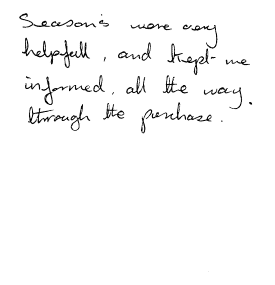 Season's were very
helpfull, and kept me
informed, all the way.
through the purchase.